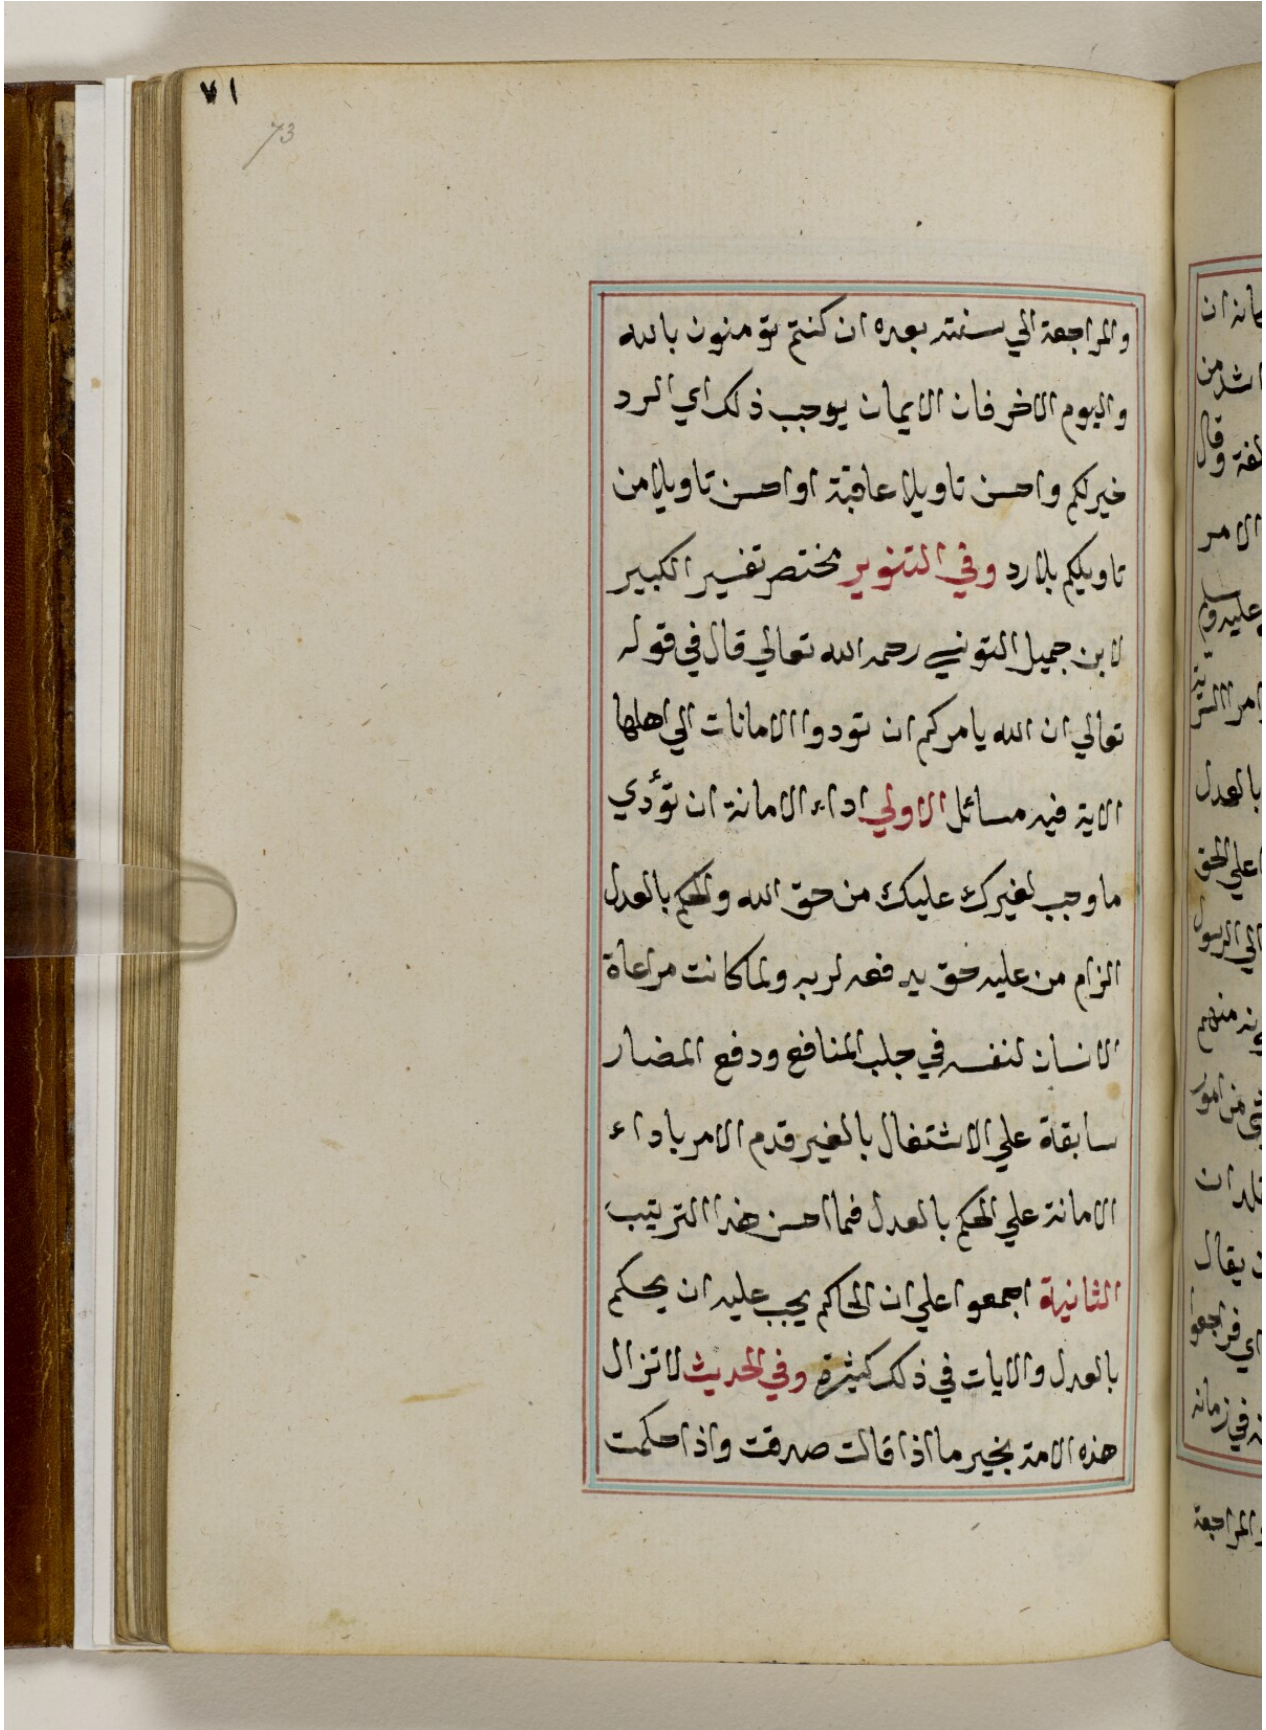 ٧١
73
والمراجعة الي سنته بعده ان كنتم تؤمنون بالله
واليوم الاخر فان الايمان يوجب ذلك اي الرد
خير لكم واحسن تاويلا عاقبة او احسن تاويلا من
تاويلكم بلا رد وفي التنوير مختصر تفسير الكبير
لابن جميل التونسي رحمه الله تعالي قال في قوله
تعالي ان الله يامركم ان تودوا الامانات الي اهلها
الاية فيه مسائل الاولي اداء الامانة ان تؤدي
ما وجب لغيرك عليك من حق الله والحكم بالعدل
الزام من عليه حق يدفعه لربه ولما كانت مراعاة
الانسان لنفسه في جلب المنافع ودفع المضار
سابقة علي الاشتغال بالغير قدم الامر باداء
الامانة علي الحكم بالعدل فما احسن هذا الترتيب
الثانية اجمعوا علي ان الحاكم يجب عليه ان يحكم
بالعدل والايات في ذلك كثيرة وفي الحديث لا تزال
هذه الامة بخير ما اذا قالت صدقت واذا حكمت
الامر
بالعدل
يقال
والمراجعة